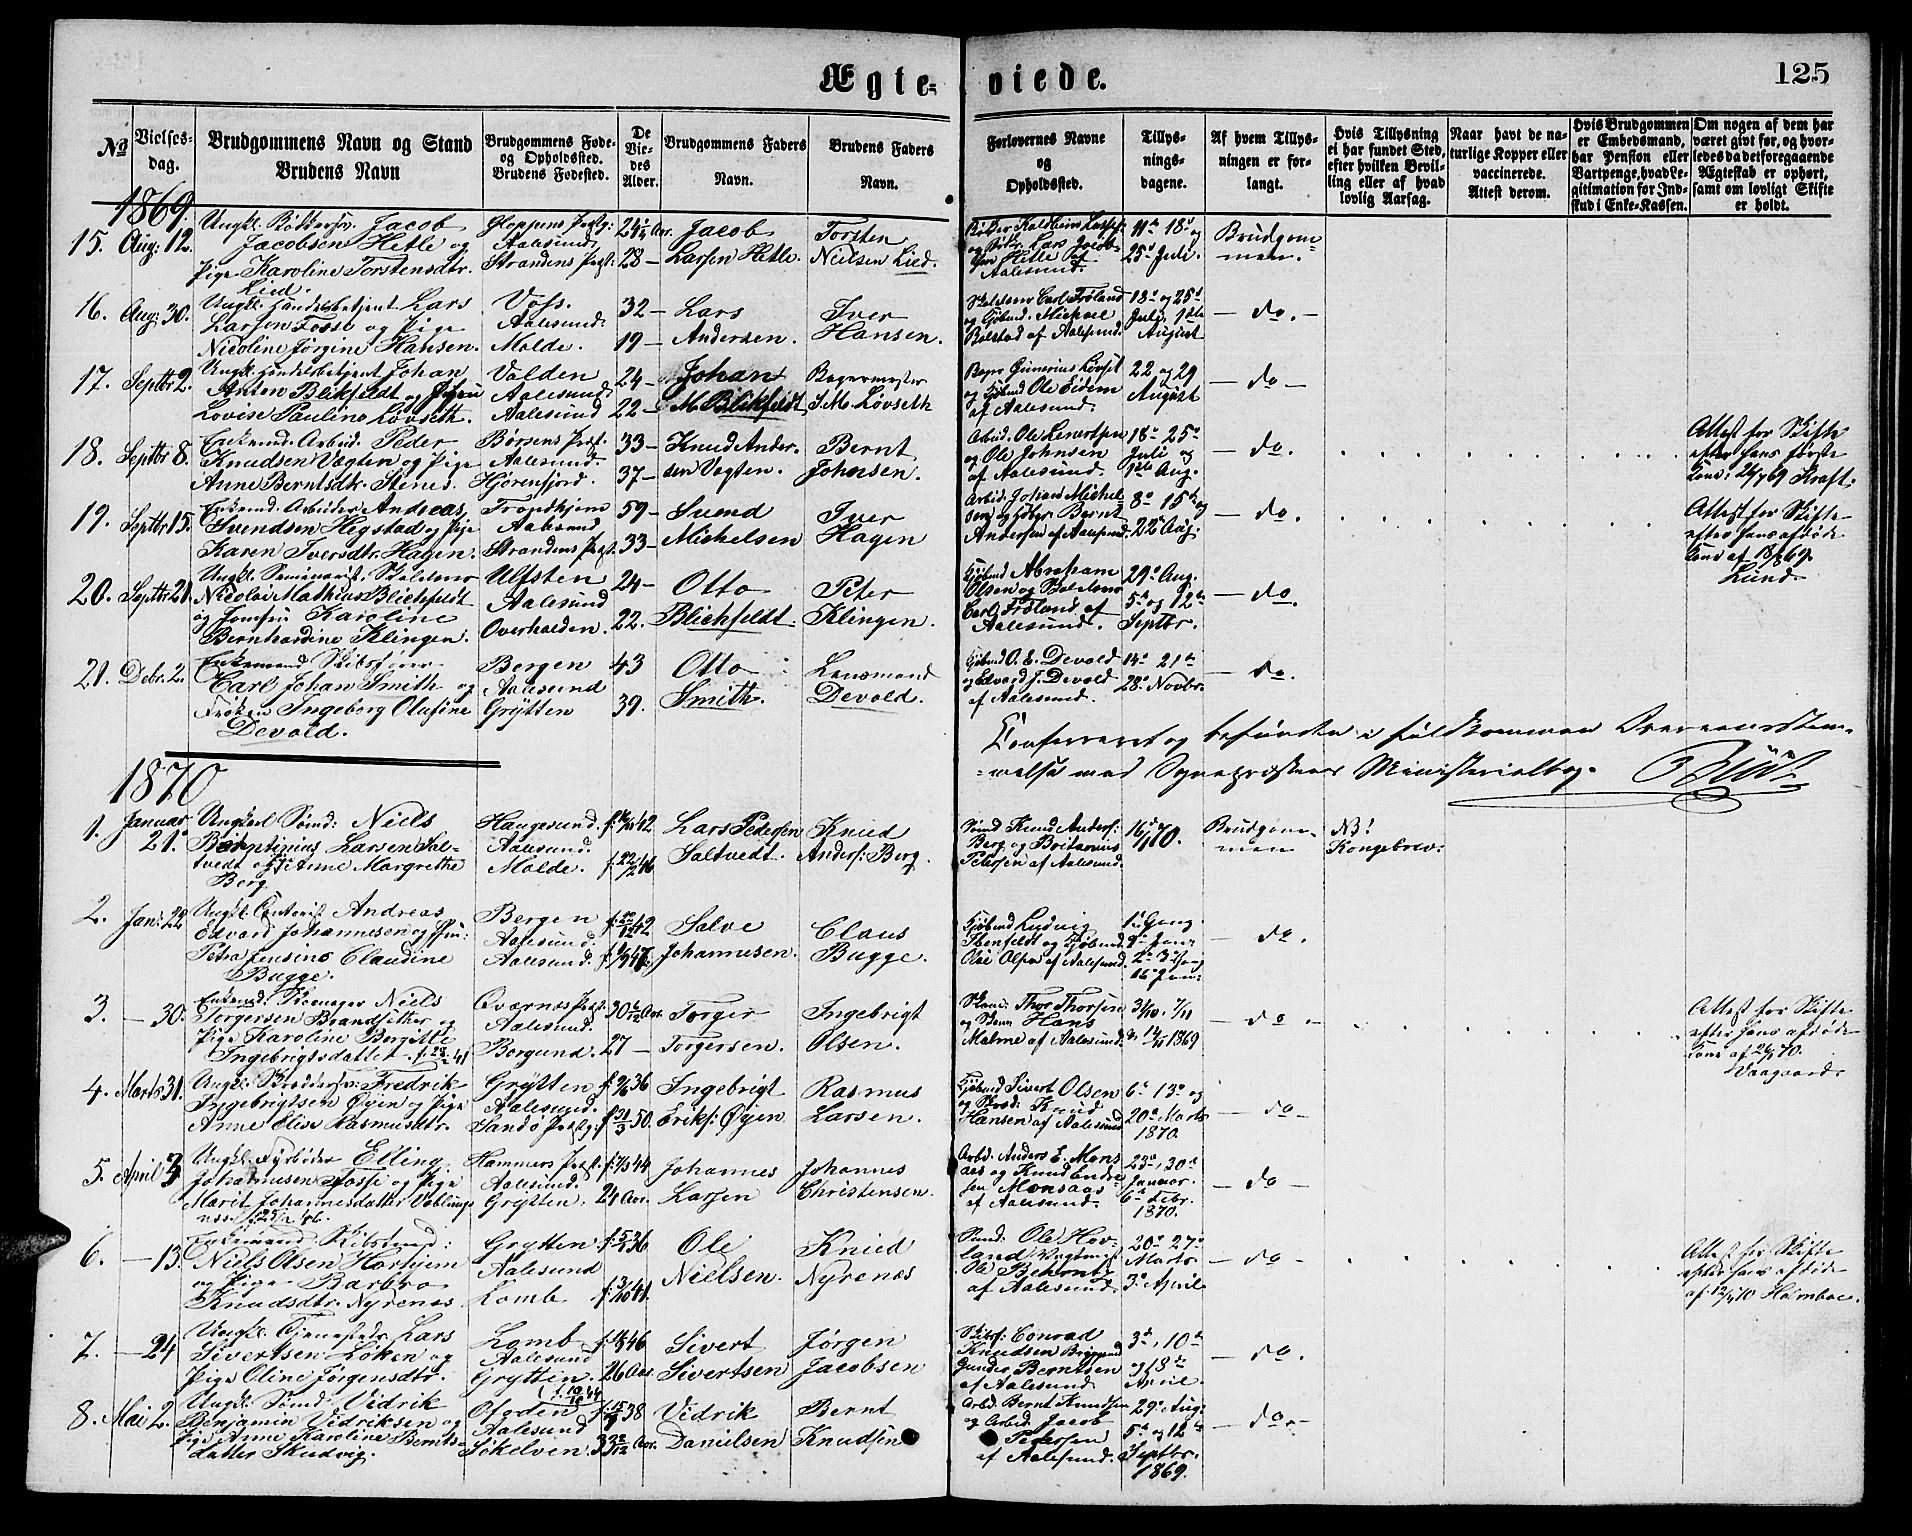 Ægte-
viede.
125
No
Vielses-
dag.
Brudgommens Navn og Stand
Brudens Navn
Brudgommens Føde-
og Opholdssted.
Brudens Fødested.
De
Vie-
des
Alder.
Brudgommens Faders
Navn.
Brudens Faders
Navn.
Forlovernes Navne
og
Opholdssted.
Tillys-
nings-
dagene.
Af hvem Tillys-
ningen er for-
langt.
Hvis Tillysning
ei har fundet Sted,
efter hvilken Bevil-
ling eller af hvad
lovlig Aarsag.
Naar havt de na-
turlige Kopper eller
vaccinerede.
Attest derom.
Hvis Brudgommen
er Embedsmand,
har Pension eller
Vartpenge, hvad Le-
gitimation for Ind-
skud i Enke-Kassen.
Om nogen af dem har
været givt før, og hvor-
ledes da det foregaaende
Ægteskab er ophørt,
samt om lovligt Skifte
er holdt.
1869.
15. Aug: 12.
Jacob
Jacobsen Hetle og
Pige Karoline Torstensdtr.
Lied.
Gloppens
Aalesund
Strandens
28 —
Jacob
Larsen Hetle.
Torsten
Nielsen Lied.
Aalesund.
11te 18de og
25de Juli.
Brudgom-
men.
16. Aug: 30.
Ungkl. Handelsbetjent Lars
Larsen Fosse og Pige
Nicoline Jørgine Hansen.
Voss.
Aalesund.
Molde.
32 —
19 —
Lars
Andersen.
Iver
Hansen.
Carl Frøland
og Kjøbmd: Michael
Rolstad af Aalesund.
18de og 25de
Juli, 1ste
August
— do. —
17. Septbr 2.
Ungkl. Handelsbetjent Johan
Anton Blikfeldt og Jfr
Lovise Pauline Løvseth.
Volden
Aalesund.
Aalesund
24 —
22 —
Johan
M. Blikfeldt
Bagermester
S. M. Løvseth
Bager Gunerius Løvset
og Kjøbmd Ole Eidem
af Aalesund.
22 og 29
August
— do —
18. Septbr 8.
Enkemd. Arbeid. Peder
Knudsen Vegten og Pige
Anne Berntsdtr. Stenes.
Børsens Præst.
Aalesund.
Hjørenfjord.
33 —
37 —
Knud Ander-
sen Vegten.
Bernt
Johnsen.
Arbeid. Ole
og Ole Johnsen
af Aalesund.
18de 25de
Juli og
1ste Aug.
— do.
Attest for Skifte
efter hans første
Kone: 24/7 69 Kraft.
19. Septbr 15.
Enkemd. Arbeider Andreas
Svendsen Hegstad og Pige
Karen Iversdtr. Hagen.
Trondhjem
Aalesund
Strandens
59 —
33 —
Svend
Michelsen
Iver
Hagen
Arbid. Johan Michel-
sen og Bernt
Andersen af Aalesund.
8de 15de og
22de Aug.
— do.
Attest for Skifte
efter hans afdøde
Kone af 18/8 69.
Lund
20. Septbr 21.
Ungkl. Seminarist. Skoleholder
Nicolai Mathias Blichfeldt
og Jomfru Karoline
Bernhardine Klingen.
Ulfsten
Aalesund
Overhalden.
24 —
22.
Otto
Blichfeldt.
Peter
Klingen.
Kjøbmd Abraham
Olsen og
Carl Frøland af
Aalesund.
29de Aug.
5te og 12te
Septbr.
— do.
21. Debr. 2.
Enkemand Skibsfører
Carl Johan Smith og
Frøken Ingeborg Olufine
Devold.
Bergen
Aalesund
Grytten
43
39.
Otto
Smith.
Lensmand
Devold.
Kjøbmd O. E. Devold
og Edvard J. Devold
af Aalesund.
14de 21de
28de Novbr.
— do.
Confereret og befunden i fuldkommen Overeensstem-
melse med Sognepræstens Ministerialbog.
1870
1. Januar
21.
Ungkarl Sømd: Niels
Larsen Sal-
tvedt og Anne Margrethe
Berg
Haugesund.
Aalesund.
Molde.
Lars Pedersen
Saltvedt.
Knud
Anders: Berg.
Sømd Knud Anders:
Berg og
Petersen af Aalesund.
Brudgom-
men
NB!
Kongebrev.
2. Jan: 22
Ungkl. Contorist Andreas
Edvard Johannesen og Jfru:
Petra Jensine Claudine
Bugge.
Bergen
Aalesund.
Aalesund.
Salve
Johannesen.
Claus
Bugge.
Kjøbmd Ludvig
Ibenfeldt og Kjøbmd:
Ole Olsen af Aalesund.
1ste Gang
Jan:
16de Jan:
— do.
3. — 30.
Enkemd: Niels
Torgersen Brandsether og
Pige Karoline Borgitte
Ingebrigtsdatter.
Qværnes
Aalesund.
Borgund.
27 —
Torger
Torgersen.
Ingebrigt
Olsen.
Thor Thorsen
og Hans
Malme af Aalesund.
3/10, 7/11
14/11 1869
— do —
Attest for Skifte
efter hans afdøde
Kone af 26/1 70.
Vaagaard
4. Marts 31.
Ungkl: Fredrik
Ingebrigtsen Øyen og Pige
Anne Elise Rasmusdtr.
Grytten
Aalesund.
Sandø
Ingebrigt
Eriks: Øyen
Rasmus
Larsen.
Kjøbmd Sivert Olsen
og Knud
Hansen af Aalesund
6te 13de og
20de Marts
1870.
— do —
5. April 3
Ungkl: Fyrbøder Elling
Johannesen Fosse og Pige
Marit Johannesdatter Veblungs-
nes.
Hammers
Aalesund.
Grytten.
24 Aar.
Johannes
Larsen
Johannes
Christensen.
Arbd. Anders E. Mons-
aas og Knud Endre-
sen Monsaas
af Aalesund.
23de, 30de
Januar.
6te Febr.
1870.
— do —
6. — 13.
Enkemand Skibstmd:
Niels Olsen Horhjem
og Pige Barbro
Knudsdtr. Nyrenes.
Grytten
Aalesund
Lomb
Ole
Nielsen.
Knud
Nyrenes
Ole Hov-
land
Ole Berntz
af Aalesund.
20de 27de
Marts
3de April
— do —
Attest for Skifte
efter hans afdøde
af 12/4 70 Holmboe.
7. — 24
Ungkl. Tjenestedr. Lars
Sivertsen Løken og
Pige Oline Jørgensdtr.
Lomb
Aalesund
Grytten.
26 Aar.
Sivert
Sivertsen
Jørgen
Jacobsen
Conrad
Knudsen
Berntsen
af Aalesund.
3de, 10de
og 18de
April.
— do.
8. Mai 2.
Ungkl. Sømd: Vidrik
Benjamin Vidriksen og
Pige Anne Karoline Bernts-
datter Skudvig.
Ofoden
Aalesund
Sökelven.
Vidrik
Danielsen
Bernt
Knudsen
Arbd Bernt Knudsen
og Arbd. Jacob
Petersen
af Aalesund.
29de Aug.
5te og 12te
Septbr.
1869.
— do. —